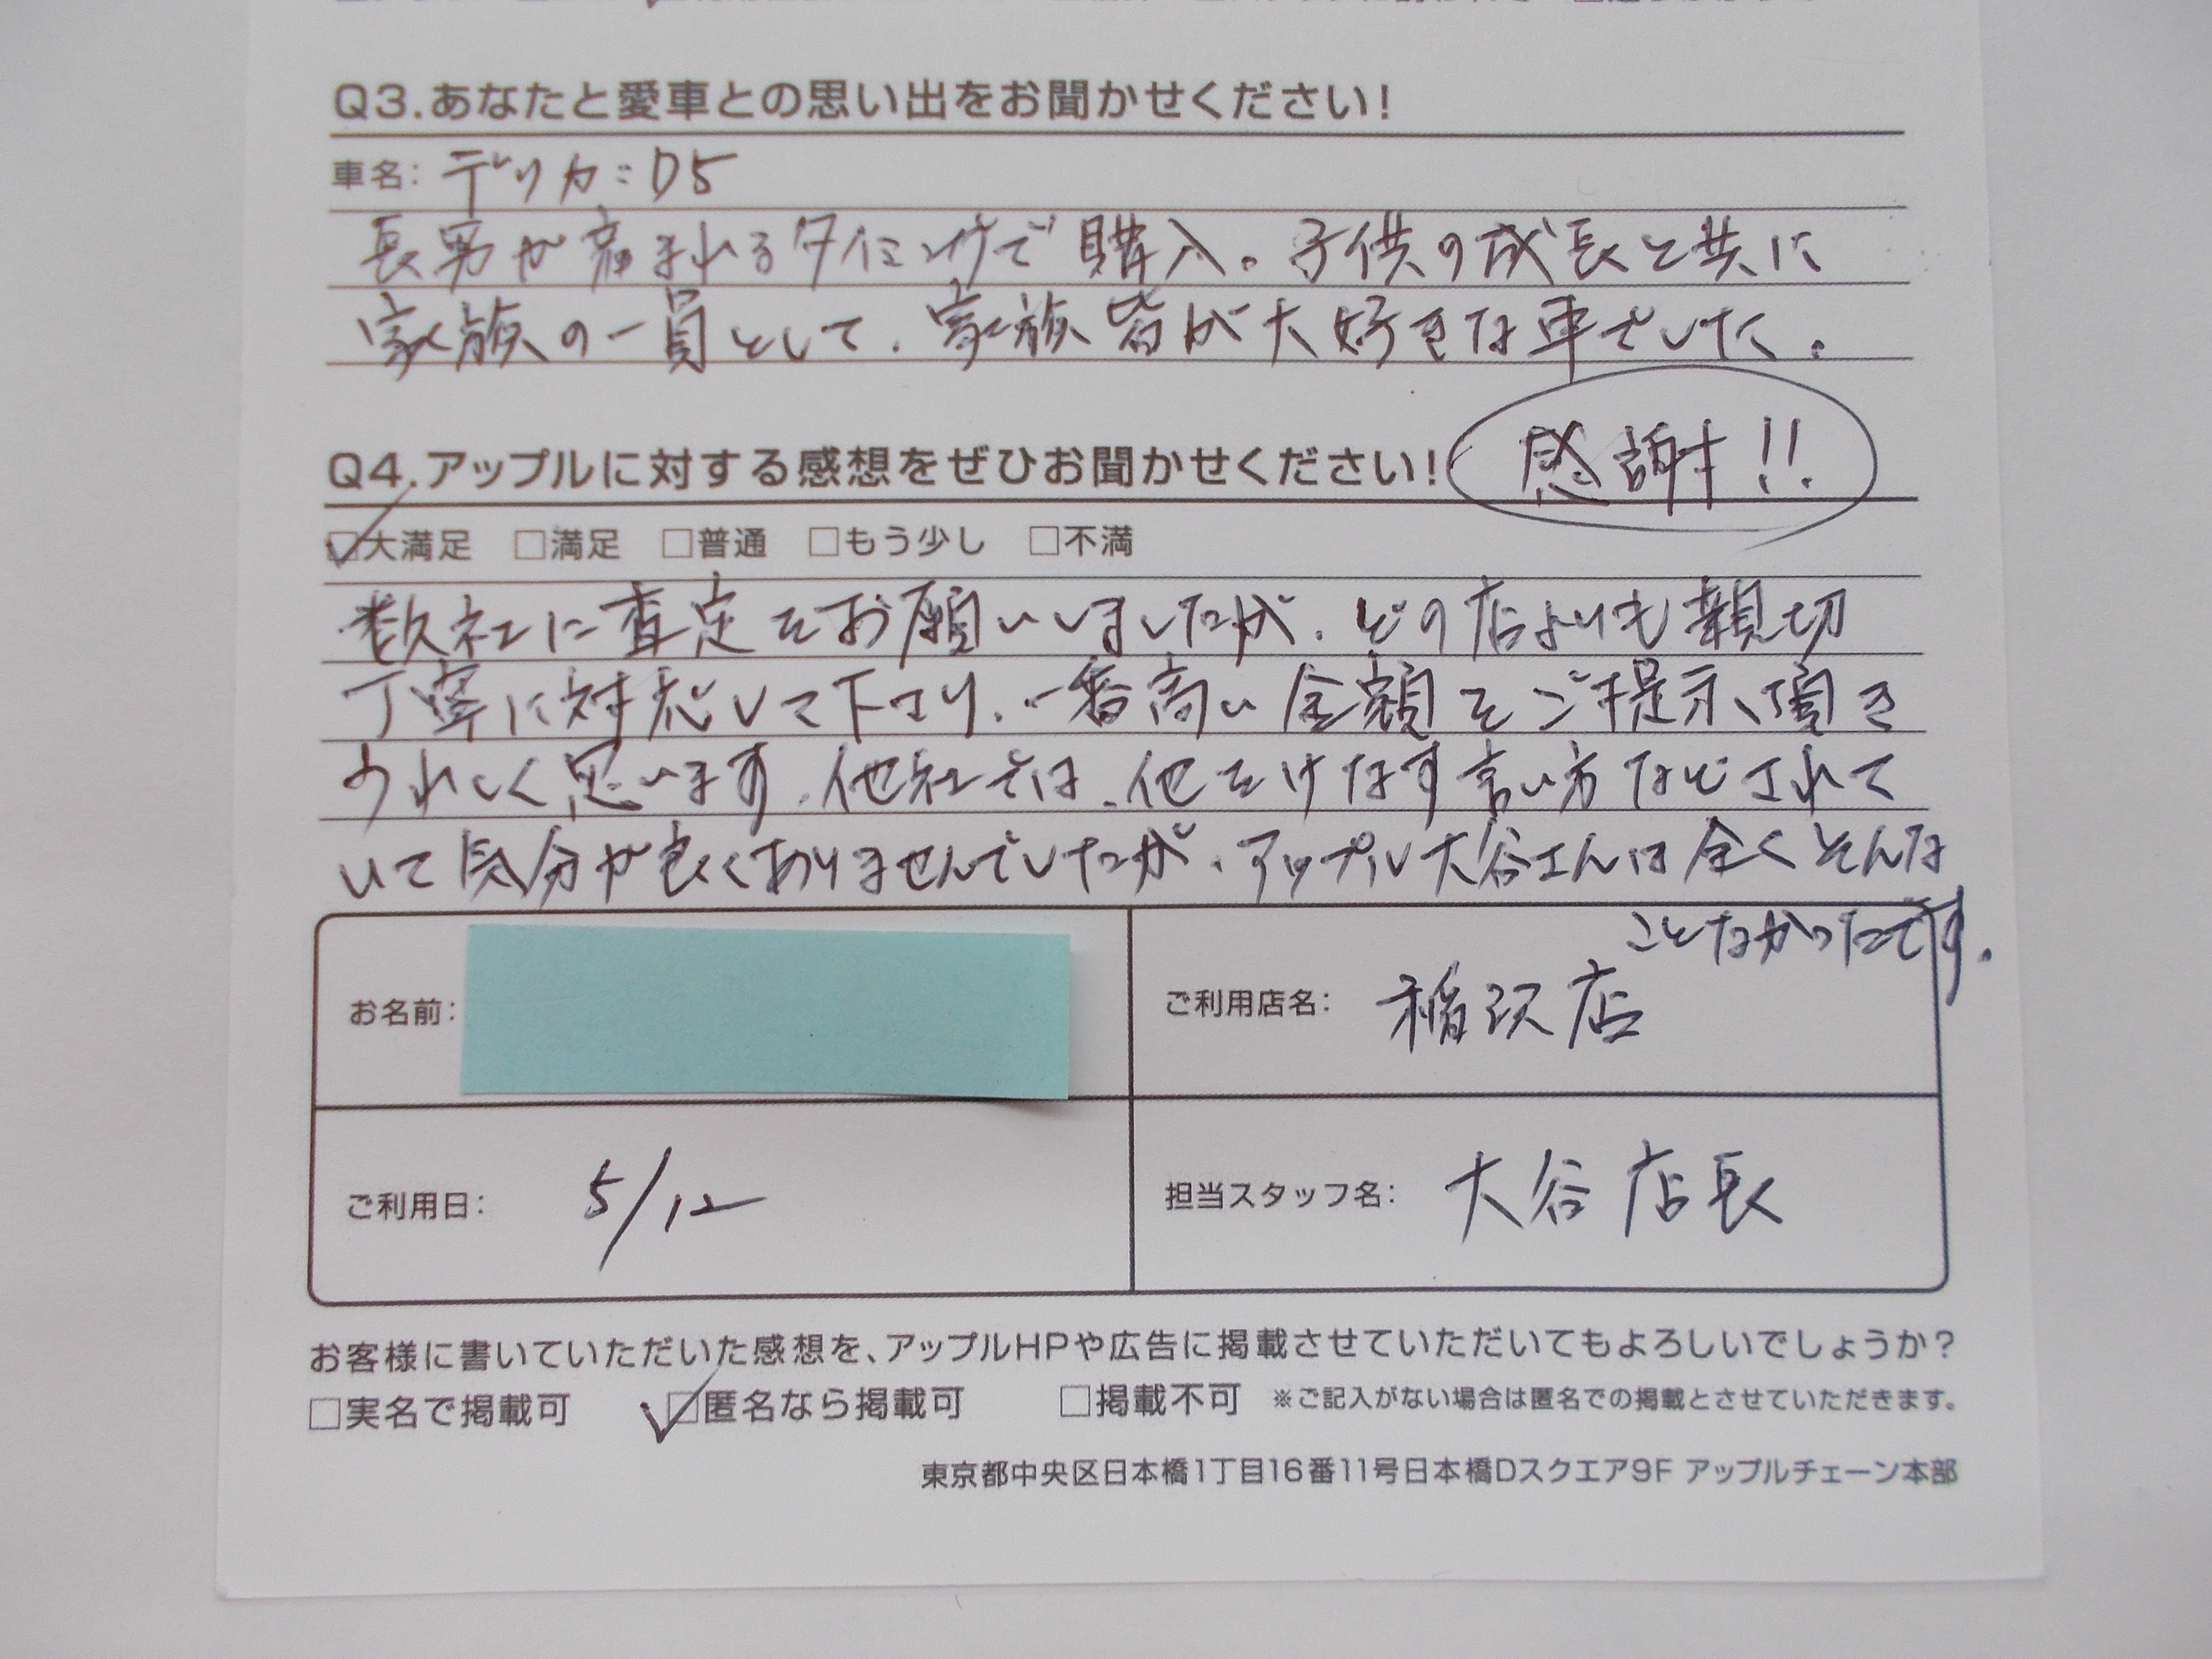 Q3.あなたと愛車との思い出をお聞かせください!
車名: デリカ:D5
長男が産まれるタイミングで購入。子供の成長と共に
家族の一員として、家族皆が大好きな車でした。
感謝!!
Q4.アップルに対する感想をぜひお聞かせください!
☑大満足 □満足 □普通 □もう少し □不満
数社に査定をお願いしましたが、どの店よりも親切
丁寧に対応して下さり、一番高い金額をご提示頂き
うれしく思います。他社では、他をけなす言い方などされて
いて気分が良くありませんでしたが、アップル大谷さんは全くそんな
ことなかったです。
お名前:
ご利用店名: 稲沢店
ご利用日: 5/12
担当スタッフ名: 大谷店長
お客様に書いていただいた感想を、アップルHPや広告に掲載させていただいてもよろしいでしょうか?
□実名で掲載可 ☑匿名なら掲載可 □掲載不可 ※ご記入がない場合は匿名での掲載とさせていただきます。
東京都中央区日本橋1丁目16番11号日本橋Dスクエア9F アップルチェーン本部